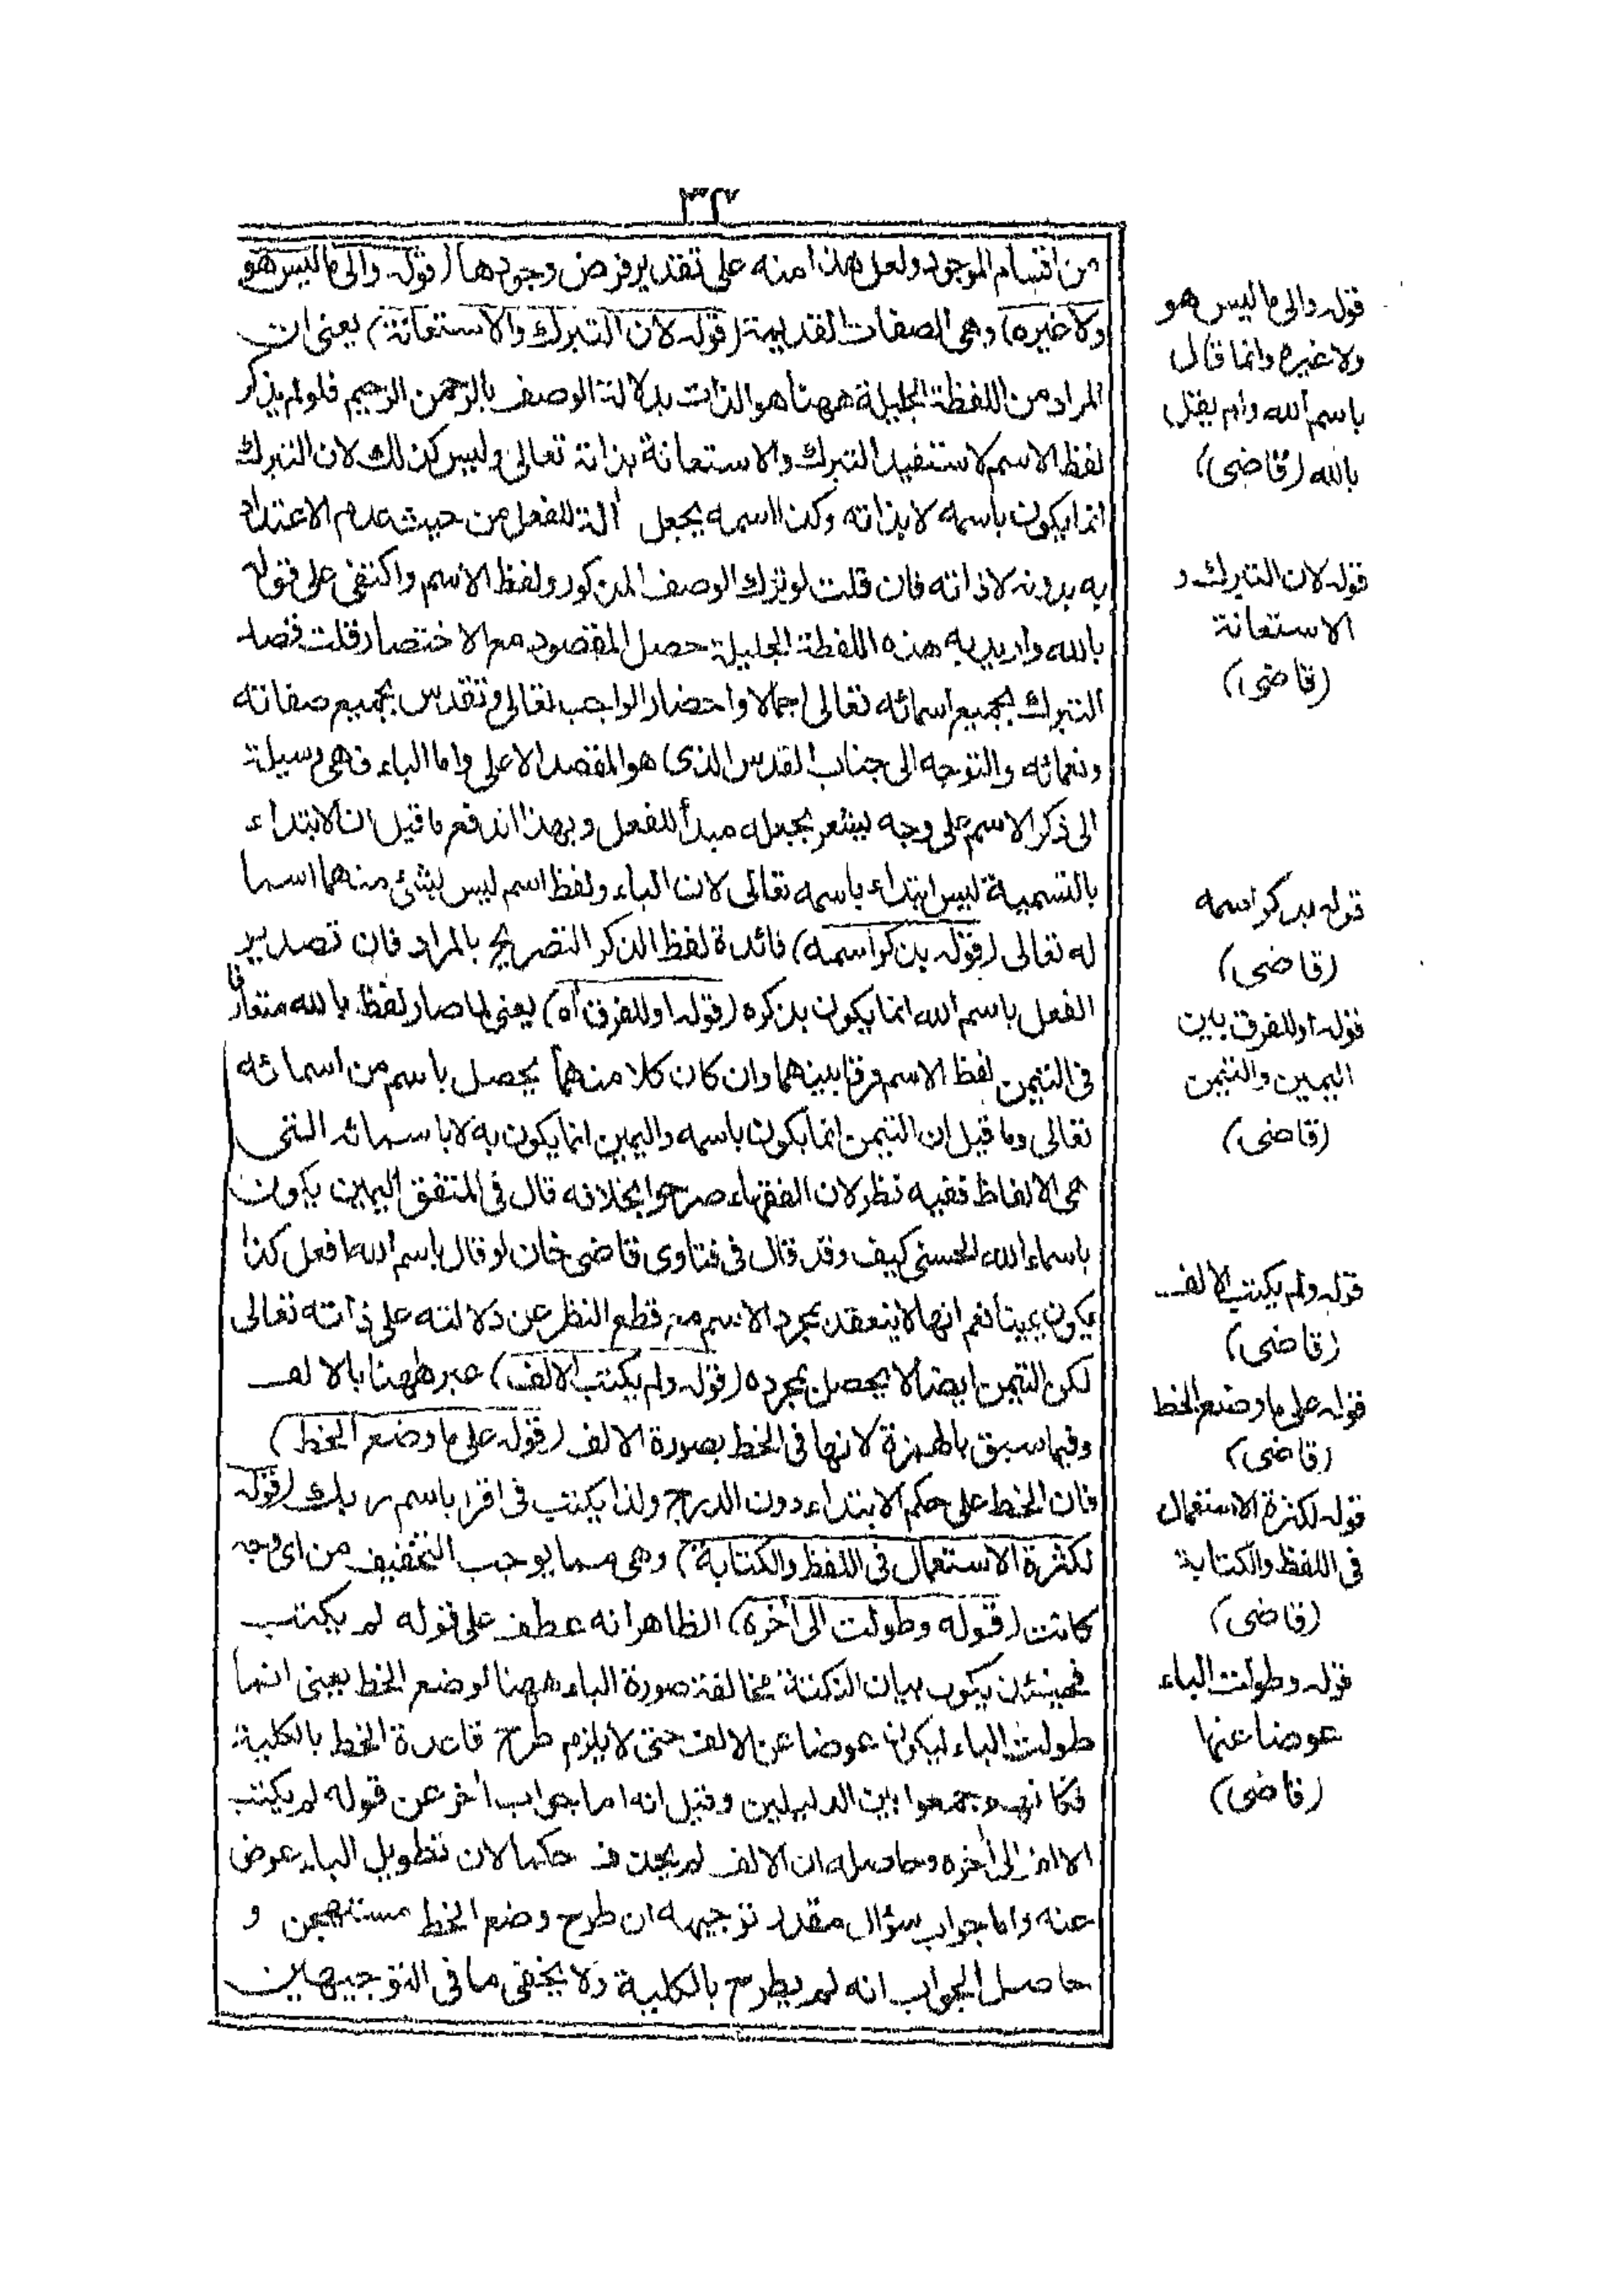 ٣٢
من اقسام الموجود ولعل هذا منه على تقدير فرض وجودها (قوله والى ما ليس هو
ولا غيره) وهى الصفات القديمة (قوله لان التبرك والاستعانة) يعنى ان
المراد من اللفظة الجليلة ههنا هو الذات بدلالة الوصف بالرحمن الرحيم فلو لم يذكر
لفظ الاسم لاستفيد التبرك والاستعانة بذاته تعالى وليس كذلك لان التبرك
انما يكون باسمه لا بذاته وكذا اسمه يجعل ألة للفعل من حيث عدم الاعتداد
به بدونه لا ذاته فان قلت لو ترك الوصف المذكور ولفظ الاسم واكتفى على قوله
بالله واريد به هذه اللفظة الجليلة حصل المقصود مع الاختصار قلت قصد
التبرك بجميع اسمائه تعالى اجمالا واحضار الواجب تعالى وتقدس بجميع صفاته
ونعمائه والتوجه الى جناب القدس الذى هو المقصد الاعلى واما الباء فهى وسيلة
الى ذكر الاسم على وجه يشعر بجعله مبدأ للفعل وبهذا اندفع ما قيل ان الابتداء
بالتسمية ليس ابتداء باسمه تعالى لان الباء ولفظ اسم ليس بشئ منهما اسما
له تعالى (قوله بذكر اسمه) فائدة لفظ الذكر التصريح بالمراد فان تصدير
الفعل باسم الله انما يكون بذكره (قوله او للفرق أه) يعنى لما صار لفظ بالله متعارفا
فى التيمن لفظ الاسم فرقا بينهما وان كان كلا منهما يحصل باسم من اسمائه
تعالى وما قيل ان التيمن انما يكون باسمه واليمين انما يكون به لا باسمائه التى
هى الالفاظ ففيه نظر لان الفقهاء صرحوا بخلافه قال فى المتفق اليمين يكون
باسماء الله الحسنى كيف وقد قال فى فتاوى قاضى خان لو قال باسم الله افعل كذا
يكون يمينا نعم انها لا ينعقد بمجرد الاسم مع قطع النظر عن دلالته على ذاته تعالى
لكن التيمن ايضا لا يحصل بمجرده (قوله ولم يكتب الالف) عبر ههنا بالالف
وفيما سبق بالهمزة لانها فى الخط بصورة الالف (قوله على ما وضع الخط)
فان الخط على حكم الابتداء دون الدرج ولذا يكتب فى اقرا باسم ربك (قوله
لكثرة الاستعمال فى اللفظ والكتابة) وهى مما يوجب التخفيف من اى وجه
كانت (قوله وطولت الى أخره) الظاهر انه عطف على قوله لم يكتب
فحينئذ يكون بيان النكتة مخالفة صورة الباء ههنا لوضع الخط يعنى انها
طولت الباء ليكون عوضا عن الالف حتى لا يلزم طرح قاعدة الخط بالكلية
فكانهم جمعوا بين الدليلين وقيل انه اما جواب أخر عن قوله لم يكتب
الالف الى أخره وحاصله ان الالف لم يحذف حكما لان تطويل الباء عوض
عنه واما جواب سؤال مقدر توجيهه ان طرح وضع الخط مستهجن و
حاصل الجواب انه لم يطرح بالكلية ولا يخفى ما فى التوجيهين
قوله والى ما ليس هو
ولا غيره وانما قال
باسم الله ولم يقل
بالله (قاضى)
قوله لان التبرك و
الاستعانة
(قاضى)
قوله بذكر اسمه
(قاضى)
قوله او للفرق بين
اليمين والتيمن
(قاضى)
قوله ولم يكتب الالف
(قاضى)
قوله على ما وضع الخط
(قاضى)
قوله لكثرة الاستعمال
فى اللفظ والكتابة
(قاضى)
قوله وطولت الباء
عوضا عنها
(قاضى)